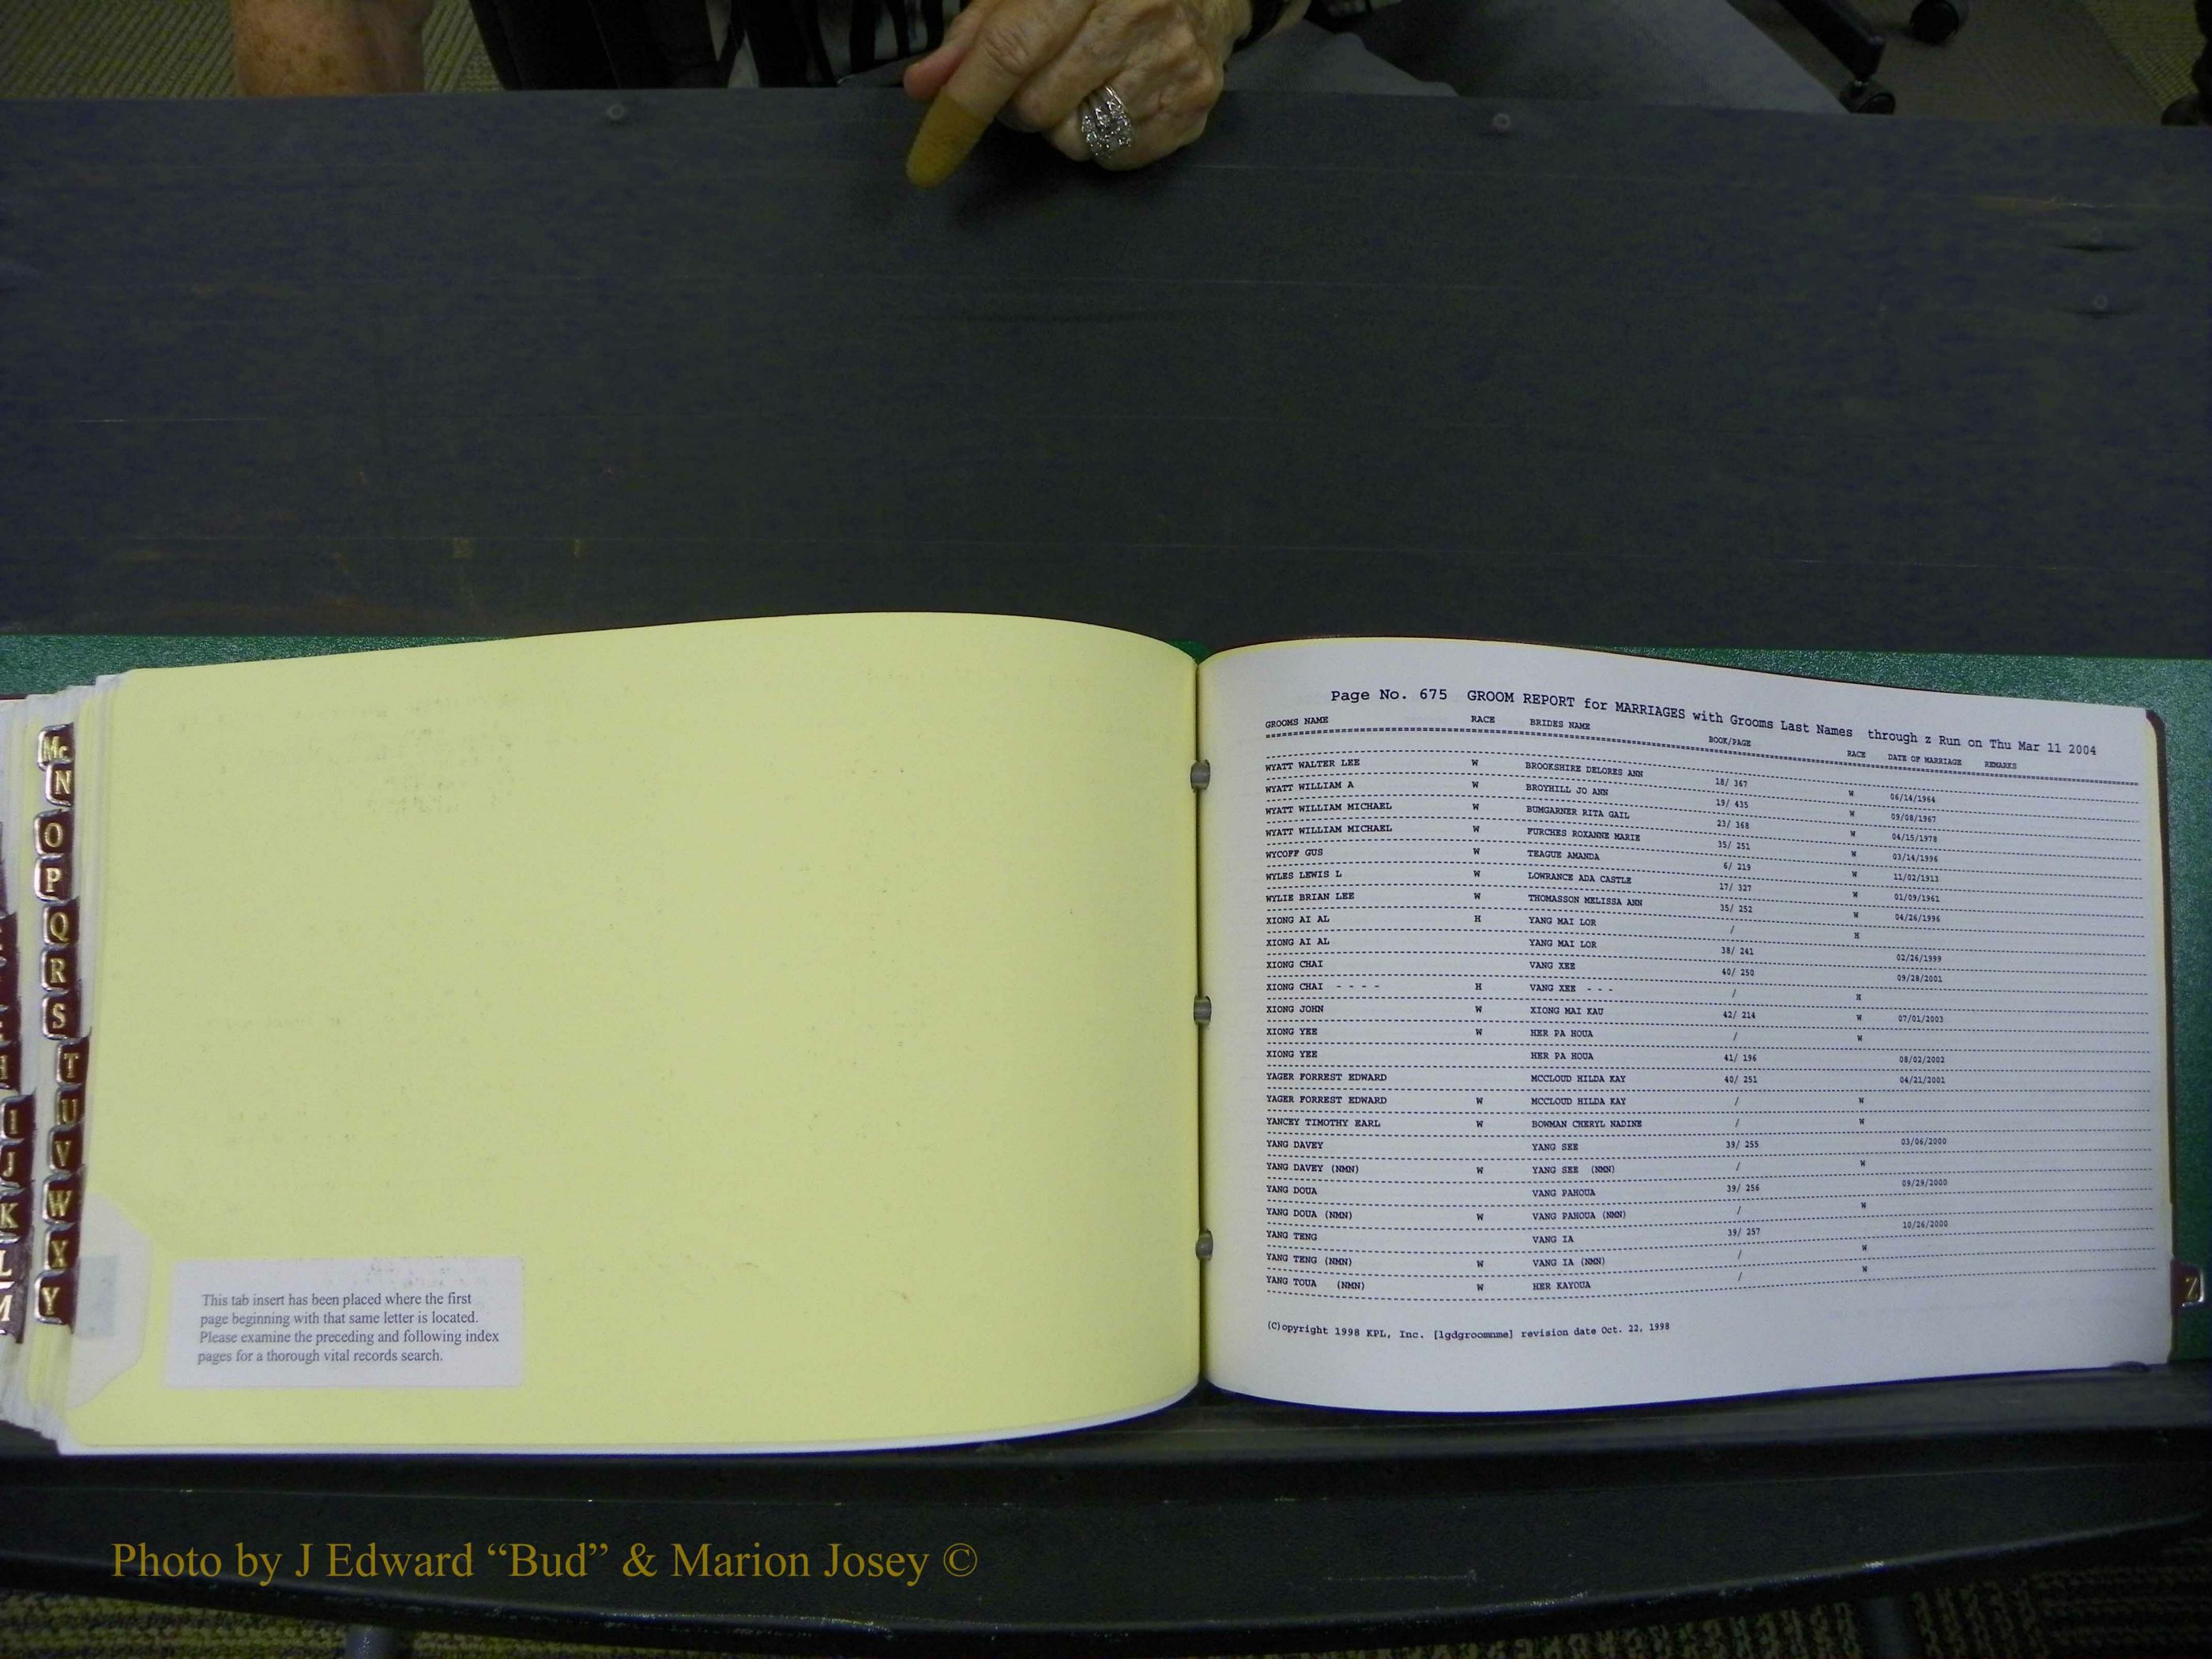 Mc
N
O
P
Q
R
S
T
U
V
W
X
Y
H
I
J
K
L
M
This tab insert has been placed where the first
page beginning with that same letter is located.
Please examine the preceding and following index
pages for a thorough vital records search.
Page No. 675 GROOM REPORT for MARRIAGES with Grooms Last Names through z Run on Thu Mar 11 2004
GROOMS NAME RACE BRIDES NAME BOOK/PAGE RACE DATE OF MARRIAGE REMARKS
WYATT WALTER LEE W BROOKSHIRE DELORES ANN 18/ 367 W 06/14/1964
WYATT WILLIAM A W BROYHILL JO ANN 19/ 435 W 09/08/1967
WYATT WILLIAM MICHAEL W BUMGARNER RITA GAIL 23/ 368 W 04/15/1978
WYATT WILLIAM MICHAEL W FURCHES ROXANNE MARIE 35/ 251 W 03/14/1996
WYCOFF GUS W TEAGUE AMANDA 6/ 219 W 11/02/1913
WYLES LEWIS L W LOWRANCE ADA CASTLE 17/ 327 W 01/09/1961
WYLIE BRIAN LEE W THOMASSON MELISSA ANN 35/ 252 W 04/26/1996
XIONG AI AL H YANG MAI LOR / H
XIONG AI AL YANG MAI LOR 38/ 241 02/26/1999
XIONG CHAI VANG XEE 40/ 250 09/28/2001
XIONG CHAI - - - - H VANG XEE - - - / H
XIONG JOHN W XIONG MAI KAU 42/ 214 W 07/01/2003
XIONG YEE W HER PA HOUA / W
XIONG YEE HER PA HOUA 41/ 196 08/02/2002
YAGER FORREST EDWARD MCCLOUD HILDA KAY 40/ 251 04/21/2001
YAGER FORREST EDWARD W MCCLOUD HILDA KAY / W
YANCEY TIMOTHY EARL W BOWMAN CHERYL NADINE / W
YANG DAVEY YANG SEE 39/ 255 03/06/2000
YANG DAVEY (NMN) W YANG SEE (NMN) / W
YANG DOUA VANG PAHOUA 39/ 256 09/29/2000
YANG DOUA (NMN) W VANG PAHOUA (NMN) / W
YANG TENG VANG IA 39/ 257 10/26/2000
YANG TENG (NMN) W VANG IA (NMN) / W
YANG TOUA (NMN) W HER KAYOUA / W
(C)opyright 1998 KPL, Inc. [lgdgroomnme] revision date Oct. 22, 1998
Z
Photo by J Edward “Bud” & Marion Josey ©